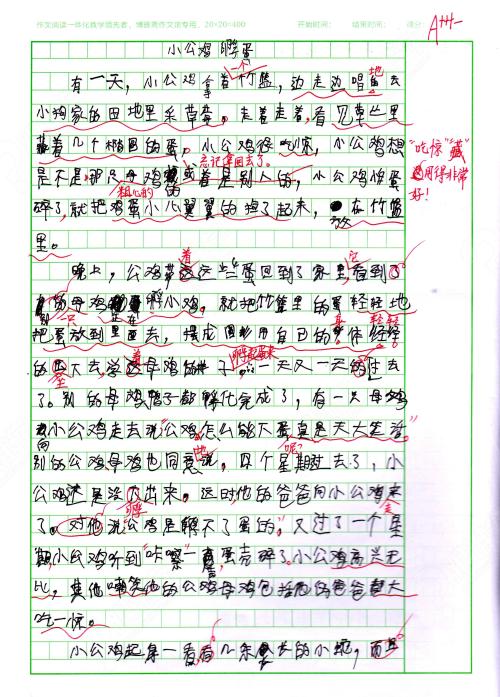 作文阅读一体化教学领先者，博喜斋作文龙专用，20×20=400 开始时间： 结束时间： 得分：
A+++
小公鸡孵蛋
有一天，小公鸡拿着一个竹篮，边走边唱地去
小狗家的田地里采草莓，走着走着，看见草丛里
藏着几个椭圆的蛋，小公鸡很吃惊，小公鸡想
忘记拿回去了。
是不是那只母鸡或着是别人的，小公鸡怕蛋
粗心的
碎了，就把鸡蛋小心翼翼的捡了起来，放在竹篮
里。
"吃惊""藏"
用得非常
好！
晚上，公鸡带着这些蛋回到了家里，它看到了
的母鸡在孵小鸡，就把竹篮里的蛋轻轻地
把蛋放到里面去，接成圆形用自己的身体轻轻
的坐下去，学着母鸡的样子，一天又一天的过去
孵起蛋来
了。别的母鸡鸭子都孵化完成了，有一只母鸡
向小公鸡走去说"公鸡怎么能下蛋真是天大笑话"
别的公鸡母鸡也同意地说，四个星期过去了，小
公鸡还是没孵出来。这时他的爸爸向小公鸡走来
了。对他说公鸡是孵不了蛋的"，又过了一个星
期，小公鸡听到"咔嚓"一声蛋壳碎了，小公鸡高兴无
比，其他嘲笑他的公鸡母鸡包括他的爸爸都大
吃一惊。
小公鸡起身一看，有几条长长的小蛇，而且